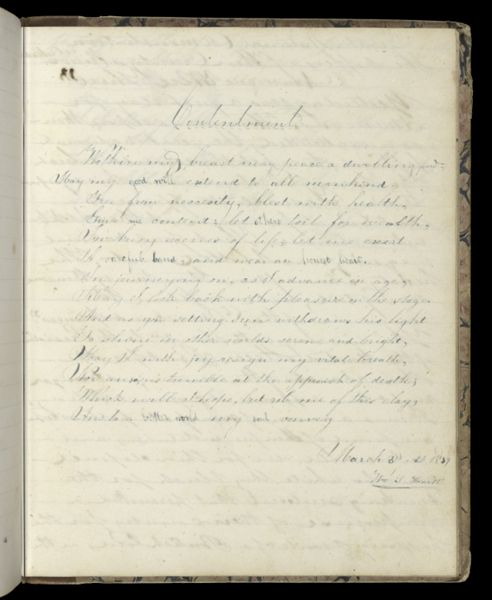 Contentment
Within my breast may peace a dwelling find
May my good will extend to all mankind,
Free from necessity, blest with health,
Give me content; let others toil for wealth.
In busy scenes of life, let me exert
A careful hand, and wear an honest heart.
In journeying on, as I advance in age,
May I look back with pleasure on the stage
And as yon setting Sun withdraws his light
To shine in other worlds serene and bright,
May I with joy resign my vital breath,
Nor anxious tremble at the approach of death;
Which will I hope, but rob me of this clay,
And to a better world my soul convey
March 18